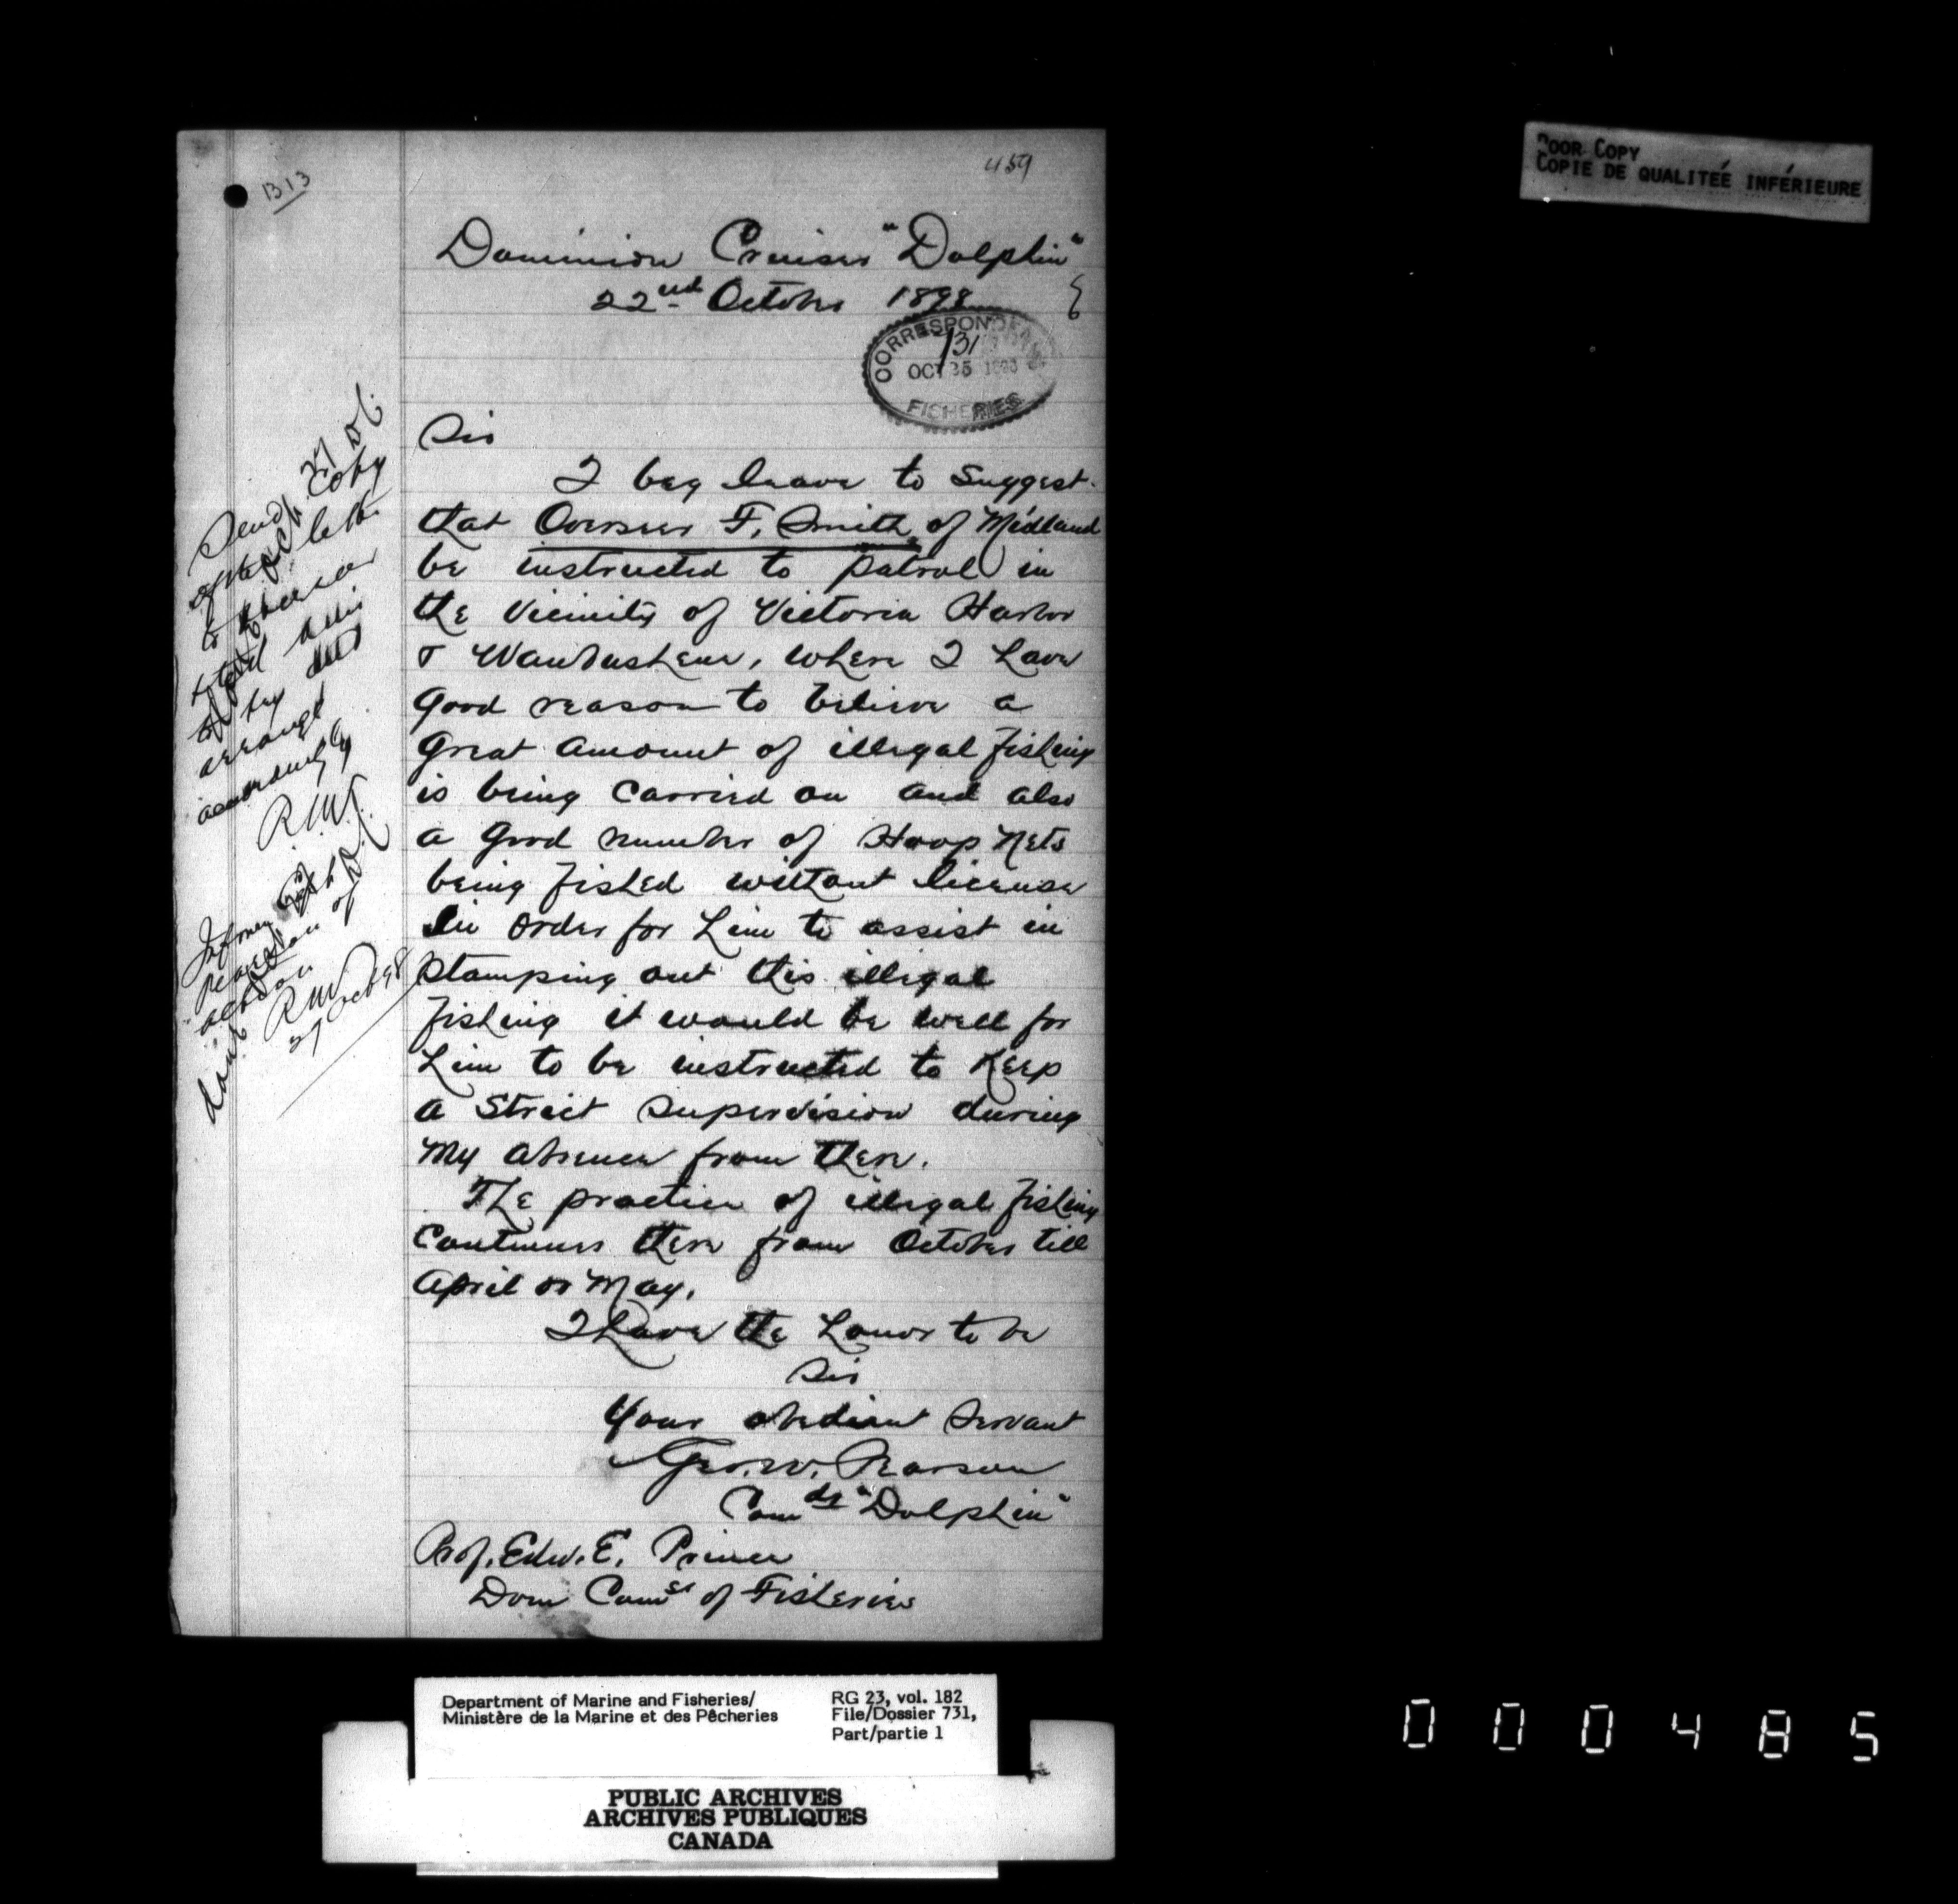 B13
459
Dominion Cruiser "Dolphin"
22nd October 1898
CORRESPONDENCE
131
OCT 25 1898
FISHERIES
Sir
I beg leave to Suggest
that Overseer F. Smith of Midland
be instructed to patrol in
the Vicinity of Victoria Harbor
& Waubushene, where I have
good reason to believe a
great amount of illegal fishing
is being Carried on and also
a good number of Hoop Nets
being fished without license
In order for him to assist in
Stamping out this illegal
fishing it would be well for
him to be instructed to Keep
a Strict supervision during
my absence from there.
The practice of illegal fishing
Continues there from October till
April or May.
I have the honor to be
Sir
Your obedient Servant
Geo. W. Pearson
Comdr "Dolphin"
Prof. Edw. E. Prince
Dom Comsr of Fisheries
Send Copy
of letter
to
to try
arrange
accordingly
R.W.
Inform Capt
Pearson of
action
27 Oct 98
POOR COPY
COPIE DE QUALITEÉ INFÉRIEURE
Department of Marine and Fisheries/
Ministère de la Marine et des Pêcheries
RG 23, vol. 182
File/Dossier 731,
Part/partie 1
PUBLIC ARCHIVES
ARCHIVES PUBLIQUES
CANADA
000485